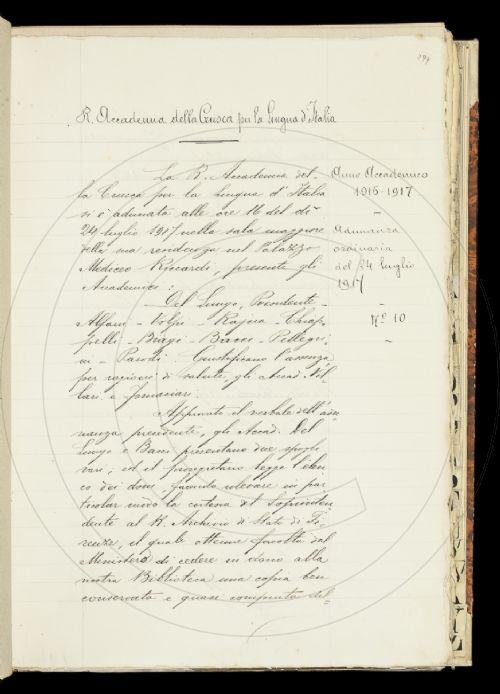 R. Accademia della Crusca per la lingua d'Italia
La R. Accademia del-
la Crusca per la lingua d'Italia
si è adunata alle ore 16 del dì
24 luglio 1917 nella sala maggiore
della sua residenza nel Palazzo
Mediceo-Riccardi, presenti gli
Accademici:
Del Lungo, Presidente -
Volpi - Rajna - Chiap-
pelli - Biagi - Bacci - Pellegri-
ni - Parodi. Giustificano l'assenza
per ragioni di salute, gli Accad. Vil-
lari e
Approvato il verbale dell'adu-
nanza precedente, gli Accad. Del
Lungo e Bacci presentano due spogli
vari; ed il Segretario legge l'elen-
co dei doni, facendo rilevare in par-
ticolar modo la cortesia del Soprinten-
dente al R. Archivio di Stato di Fi-
renze, il quale ottenne facoltà dal
Ministero di cedere in dono alla
nostra Biblioteca una copia ben
conservata e quasi compiuta del-
Anno Accademico
1916-1917
Adunanza
ordinaria
del 24 luglio
1917
N.° 10